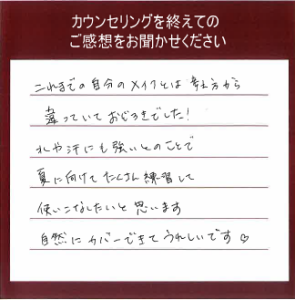 カウンセリングを終えての
ご感想をお聞かせください
これまでの自分のメイクとは 考え方から
違っていておどろきでした!
水や汗にも強いとのことで
夏に向けて たくさん練習して
使いこなしたいと思います
自然にカバーできてうれしいです♡